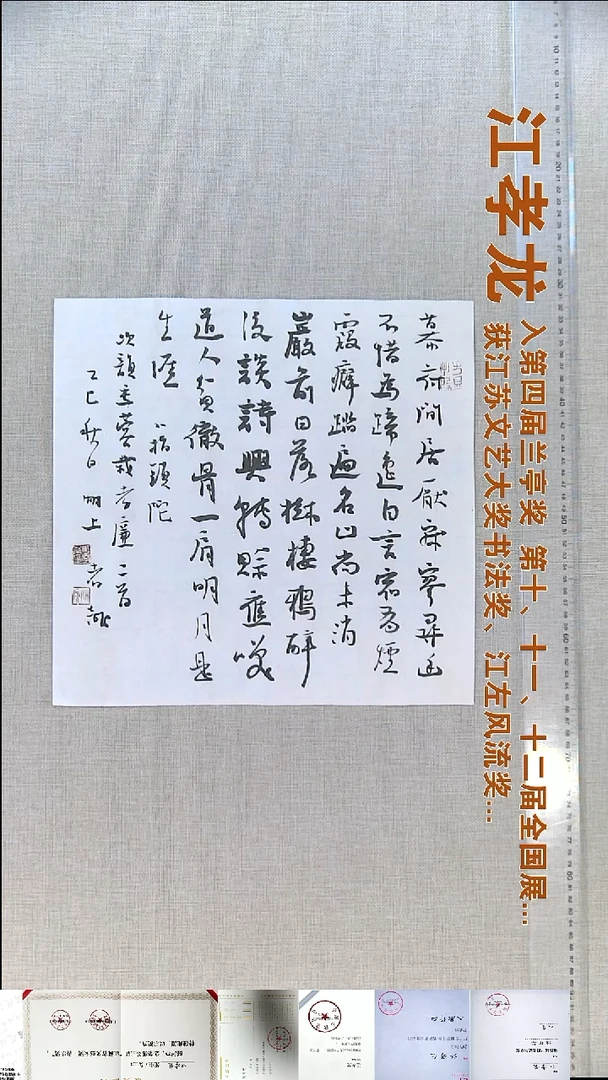 江孝龙
入第四届兰亭奖 第十、十一、十二届全国展...
获江苏文艺大奖书法奖、江左风流奖...
幕府閒居厭寂寥尋幽
不惜馬蹄遙自言煙
霞癖踏遍名山尚未消
巖前日落樹棲鴉醉
後談詩興轉賒應笑
道人貧徹骨一肩明月是
生涯 八指頭陀
次韻孝廉二首
乙巳秋日